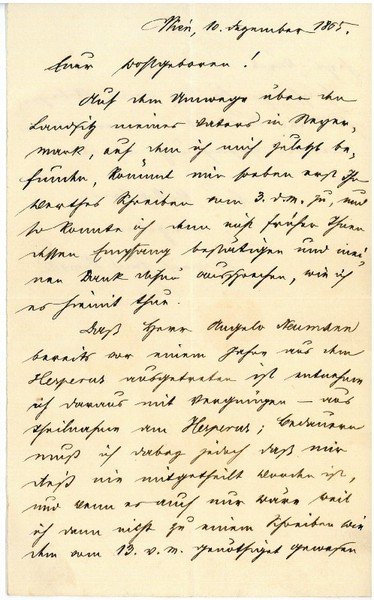 Wien, 10. Dezember 1865.
Euer Wohlgeboren!
Auf dem Umwege über den
Landsitz meines Vaters in Steyer-
mark, auf dem ich mich zuletzt be-
funden, kömmt mir soeben erst Ihr
werthes Schreiben vom 3. d. M. zu, und
so konnte ich denn nicht früher Ihnen
dessen Empfang bestätigen und mei-
nen Dank dafür aussprechen, wie ich
es hiemit thue.
Daß Herr Angelo Neumann
bereits vor einem Jahre aus dem
Hesperus ausgetreten ist entnehme
ich daraus mit Vergnügen — aus
Theilnahme am Hesperus; bedauern
muß ich dabey jedoch daß mir
dieß nie mitgetheilt worden ist,
und wenn es auch nur wäre weil
ich dann nicht zu einem Schreiben wie
dem vom 13. v. M. genöthiget gewesen